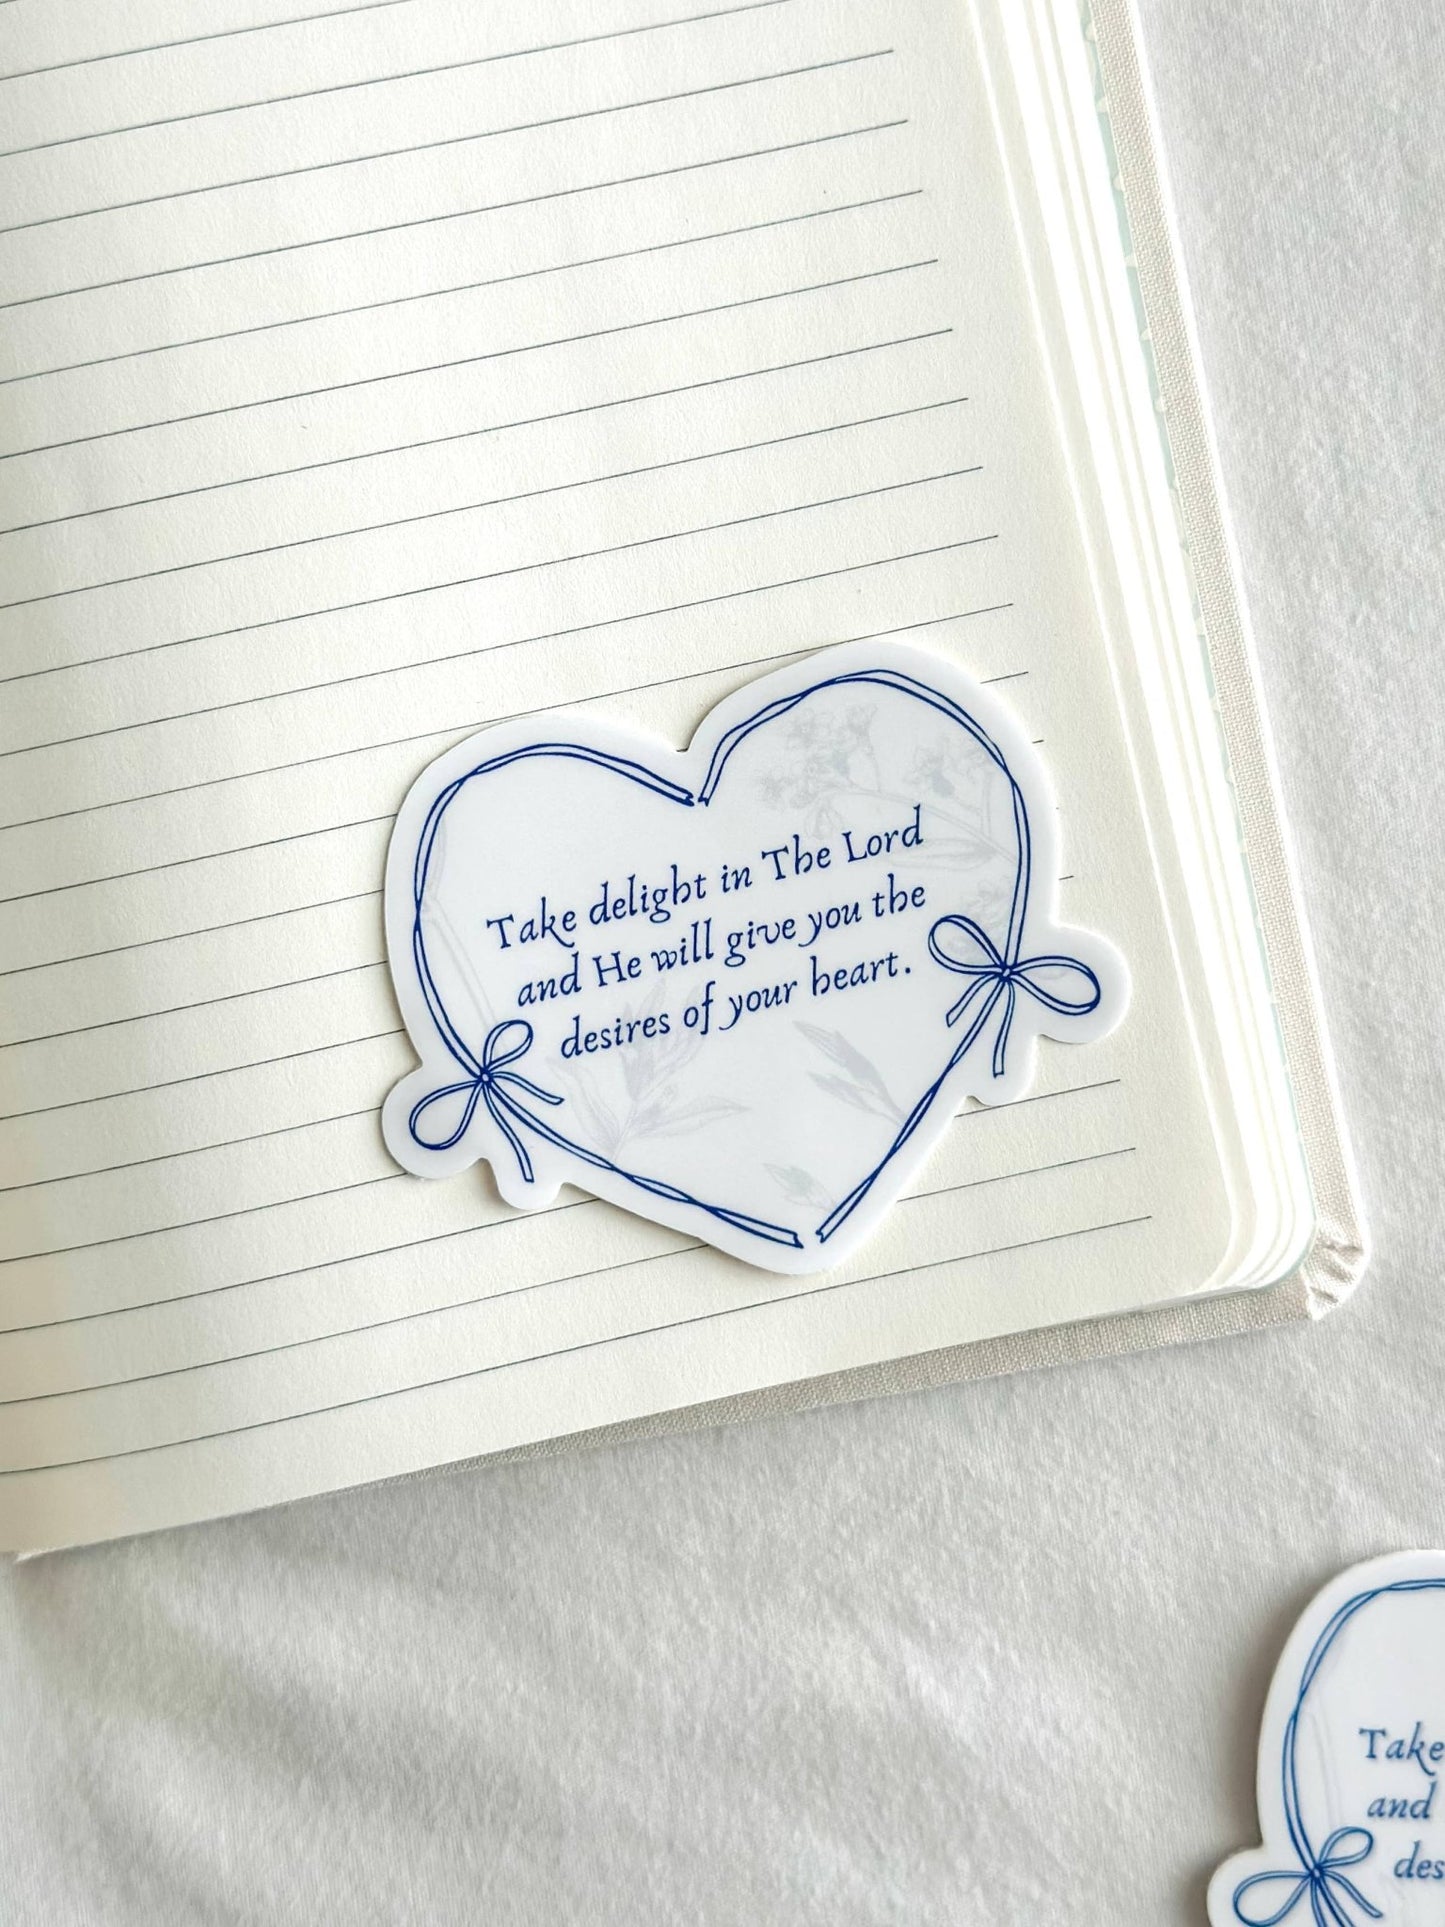 Take delight in The Lord
and He will give you the
desires of your heart.
Take
and
des